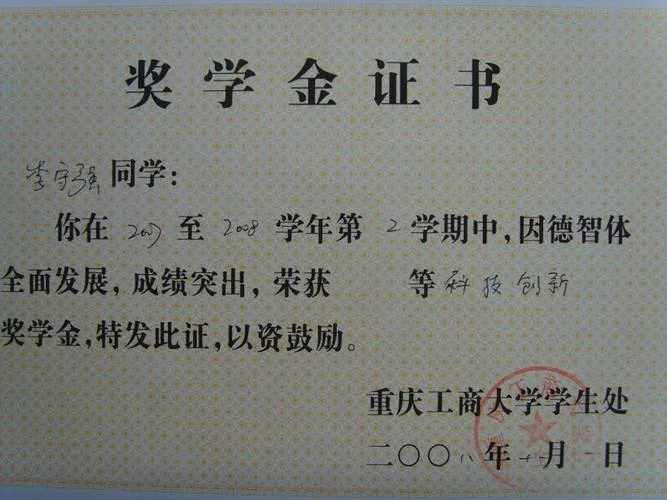 奖学金证书
李守强同学：
你在2007至2008学年第2学期中，因德智体
全面发展，成绩突出，荣获 等科技创新
奖学金，特发此证，以资鼓励。
重庆工商大学学生处
二〇〇八年十一月一日